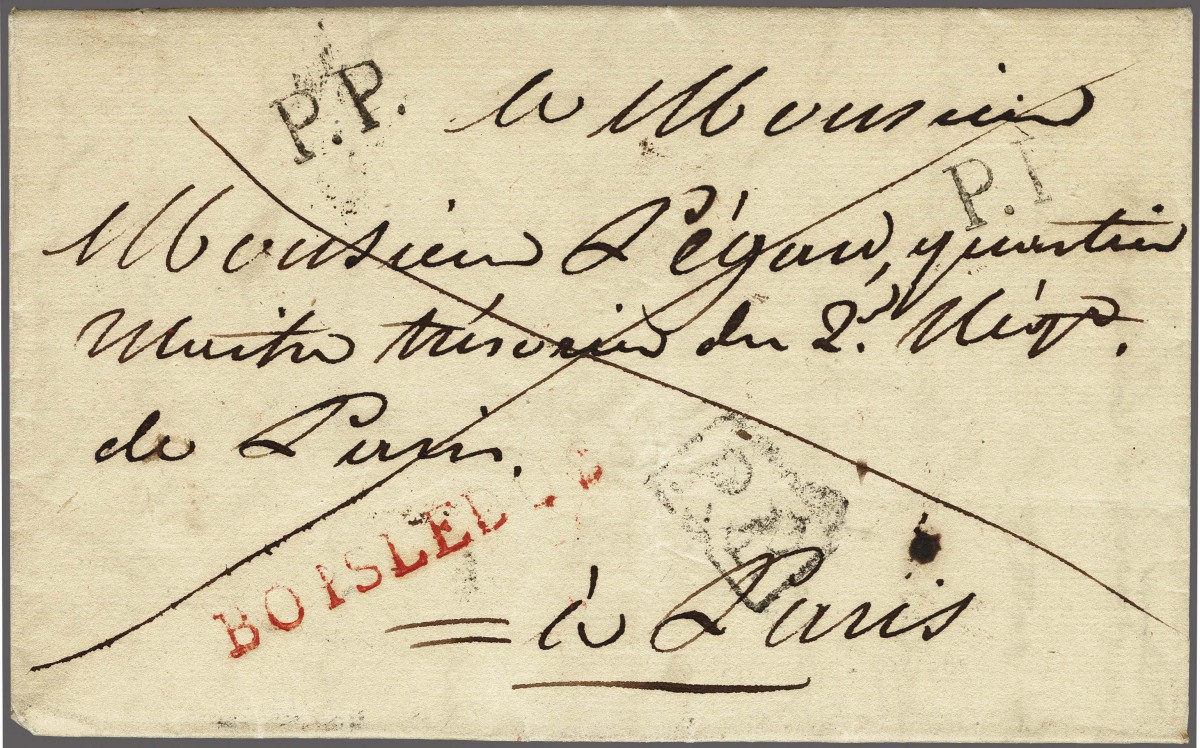 P.P.
A Monsieur
P.P
Monsieur Légau, quartier
Maitre trésorier du 2.d Rég.
de Paris.
BOISLEDUC
P
P
à Paris